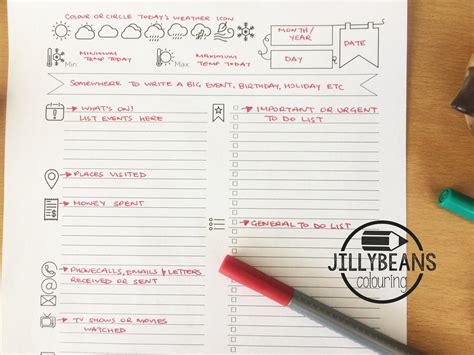 COLOUR OR CIRCLE TODAY'S WEATHER ICON
MONTH/
YEAR
DATE
DAY
Min:
MINIMUM
TEMP TODAY
Max:
MAXIMUM
TEMP TODAY
SOMEWHERE TO WRITE A BIG EVENT, BIRTHDAY, HOLIDAY ETC
WHAT'S ON!
LIST EVENTS HERE
IMPORTANT OR URGENT
TO DO LIST
PLACES VISITED
MONEY SPENT
GENERAL TO DO LIST
PHONECALLS, EMAILS & LETTERS
RECEIVED OR SENT
TV SHOWS OR MOVIES
WATCHED
JILLYBEANS
colouring